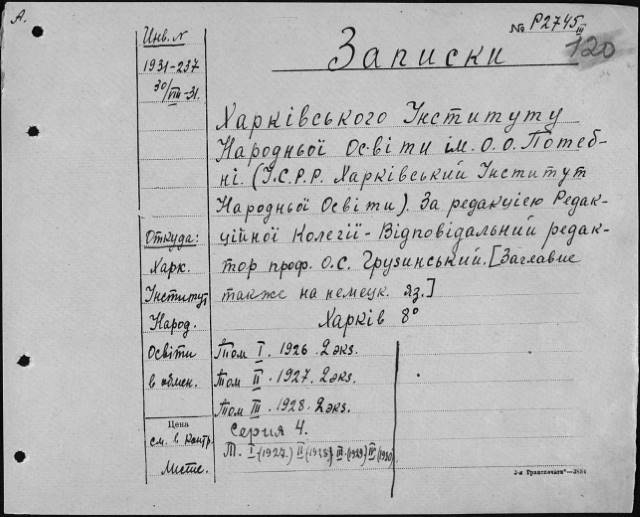 А.
№ Р2745/III
120
Записки
Инв. №
1931-237
30/VIII-31.
Харківського Інституту
Народньої Освіти ім. О. О. Потеб-
ні. (У.С.Р.Р. Харківський Інститут
Народньої Освіти). За редакцією Редак-
ційної Колегії - Відповідальний редак-
тор проф. О.С. Грузинський. [Заглавие
также на немецк. яз.]
Харків 8°
Откуда:
Харк.
Институт
Народ.
Освіти
в обмен.
Том I. 1926. 2 экз.
Том II. 1927. 2 экз.
Том III. 1928. 2 экз.
Серия 4.
Т. I (1927) II (1928) III (1929) IV (1930)
Цена
см. в контр.
Листе.